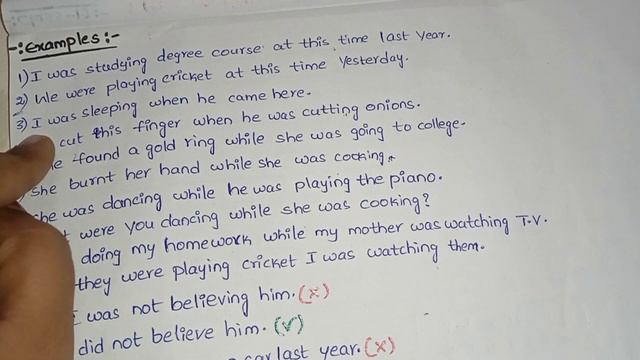 -: Examples :-
1) I was studying degree course at this time last year.
2) We were playing cricket at this time yesterday.
3) I was sleeping when he came here.
cut this finger when he was cutting onions.
found a gold ring while she was going to college.
she burnt her hand while she was cooking.
she was dancing while he was playing the piano.
were you dancing while she was cooking?
doing my homework while my mother was watching T.V.
they were playing cricket I was watching them.
I was not believing him. (x)
did not believe him. (✓)
car last year. (x)